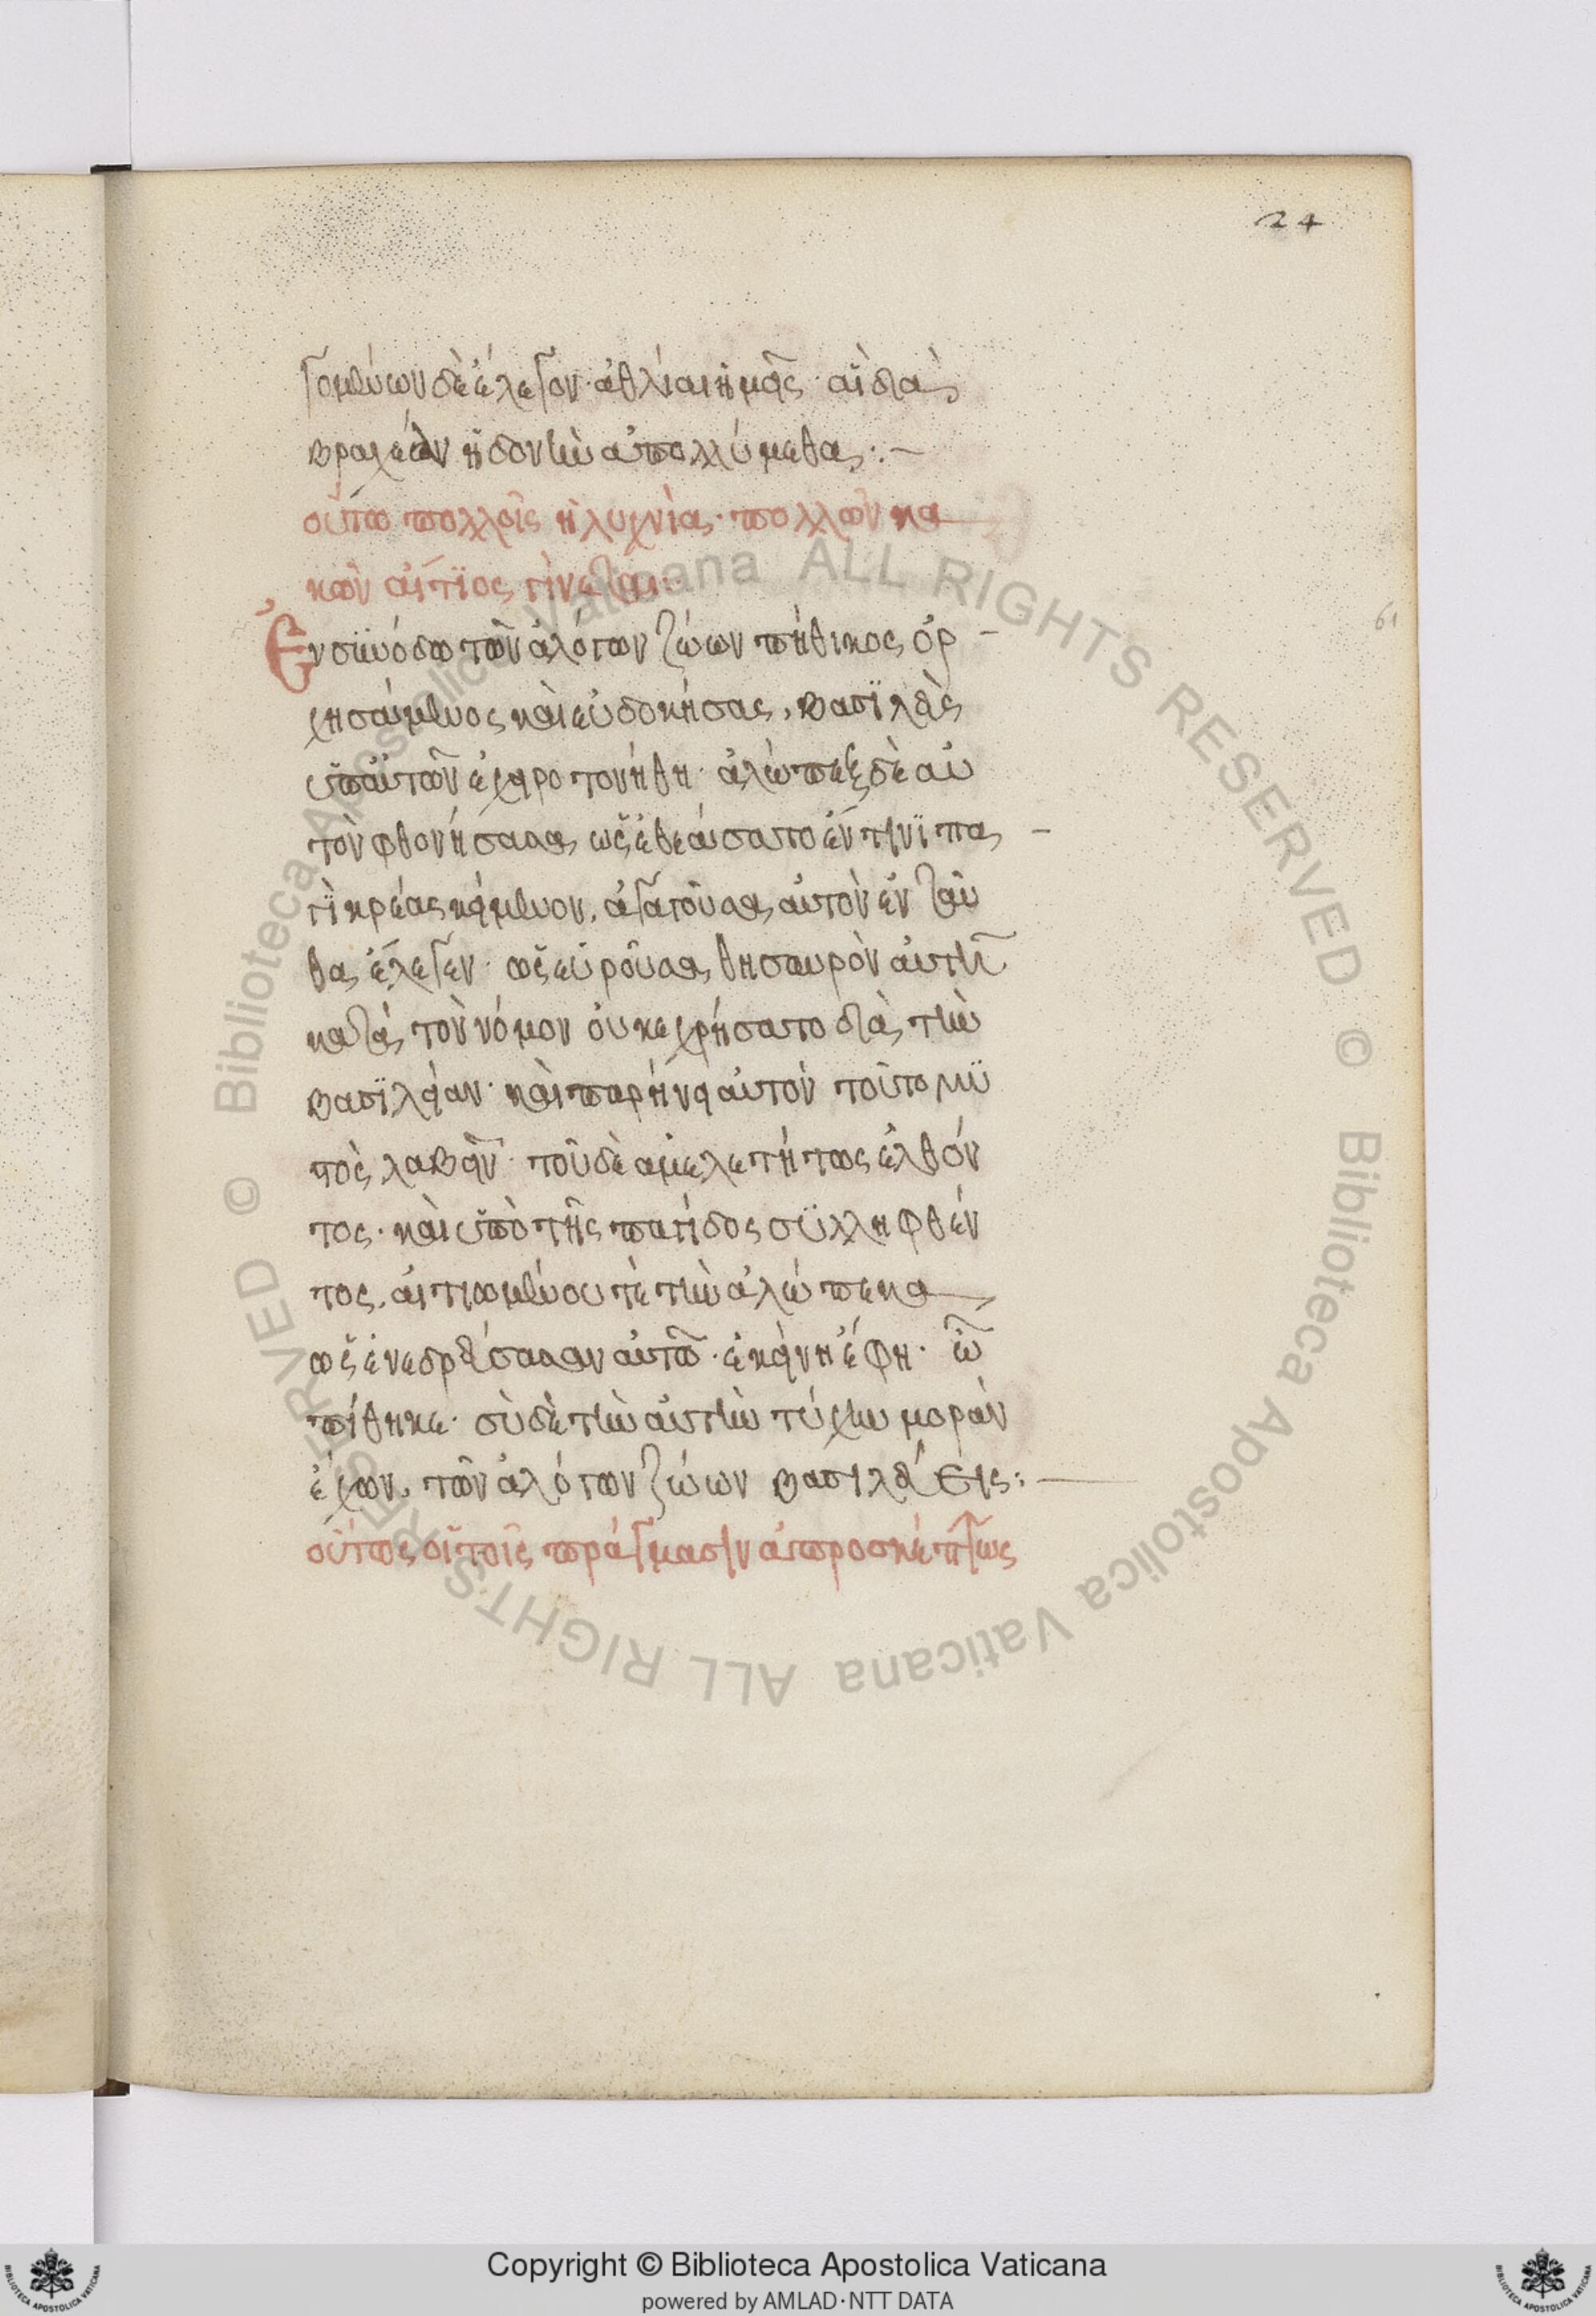 24
γομένων δὲ ἔλεγον· ἀθλιαι ἡμεῖς· αἳ διὰ
βραχεῖαν ἡδονὴν ἀπολλύμεθα:–
οὕτω πολλοῖς ἡ λιχνία· πολλῶν κα
κῶν αἴτιος γίνεται:
Ἐν συνόδω τῶν ἀλόγων ζώων πίθηκος ὀρ
χησάμενος καὶ εὐδοκήσας, βασιλεὺς
ὑπ' αὐτῶν ἐχειροτονήθη· ἀλώπηξ δὲ αὐ
τὸν φθονήσασα ὡς ἐθεάσατο ἔν τινι πα
γὶ κρέας κείμενον, ἀγαγοῦσα αὐτὸν ἐνταῦ
θα ἔλεγεν· ὡς εὑροῦσα θησαυρὸν αὐτὴ
κατὰ τὸν νόμον οὐκ ἐχρήσατο διὰ τὴν
βασιλείαν· καὶ παρήνει αὐτὸν τοῦτο μὴ
πὸς λαβεῖν· τοῦ δὲ ἀμελετήτως ἐλθόν
τος· καὶ ὑπὸ τῆς παγίδος συλληφθέν
τος, αἰτιωμένου τὲ τὴν ἀλώπεκα
ὡς ἐνεδρεύσασαν αὐτῶ· ἐκείνη ἔφη· ὦ
πίθηκε· σὺ δὲ τὴν αὐτὴν τύχην μορὰν
ἔχων, τῶν ἀλόγων ζώων βασιλεύεις:
οὕτως οἱ τοῖς πράγμασιν ἀπροσκέπτως
61
© Biblioteca Apostolica Vaticana ALL RIGHTS RESERVED
© Biblioteca Apostolica Vaticana ALL RIGHTS RESERVED
Copyright © Biblioteca Apostolica Vaticana
powered by AMLAD·NTT DATA
BIBLIOTECA APOSTOLICA VATICANA
BIBLIOTECA APOSTOLICA VATICANA